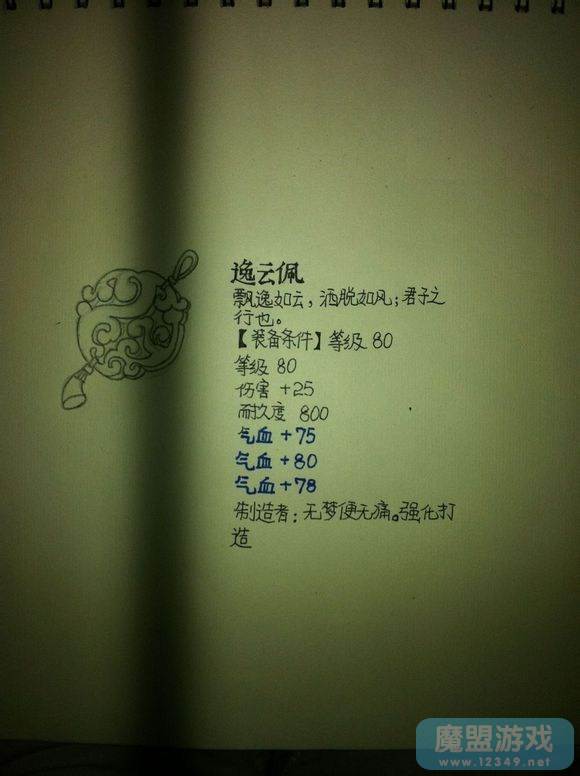 逸云佩
飘逸如云，洒脱如风；君子之
行也。
【装备条件】等级 80
等级 80
伤害 +25
耐久度 800
气血 +75
气血 +80
气血 +78
制造者：无梦便无痛。强化打
造
魔盟游戏
www.12349.net